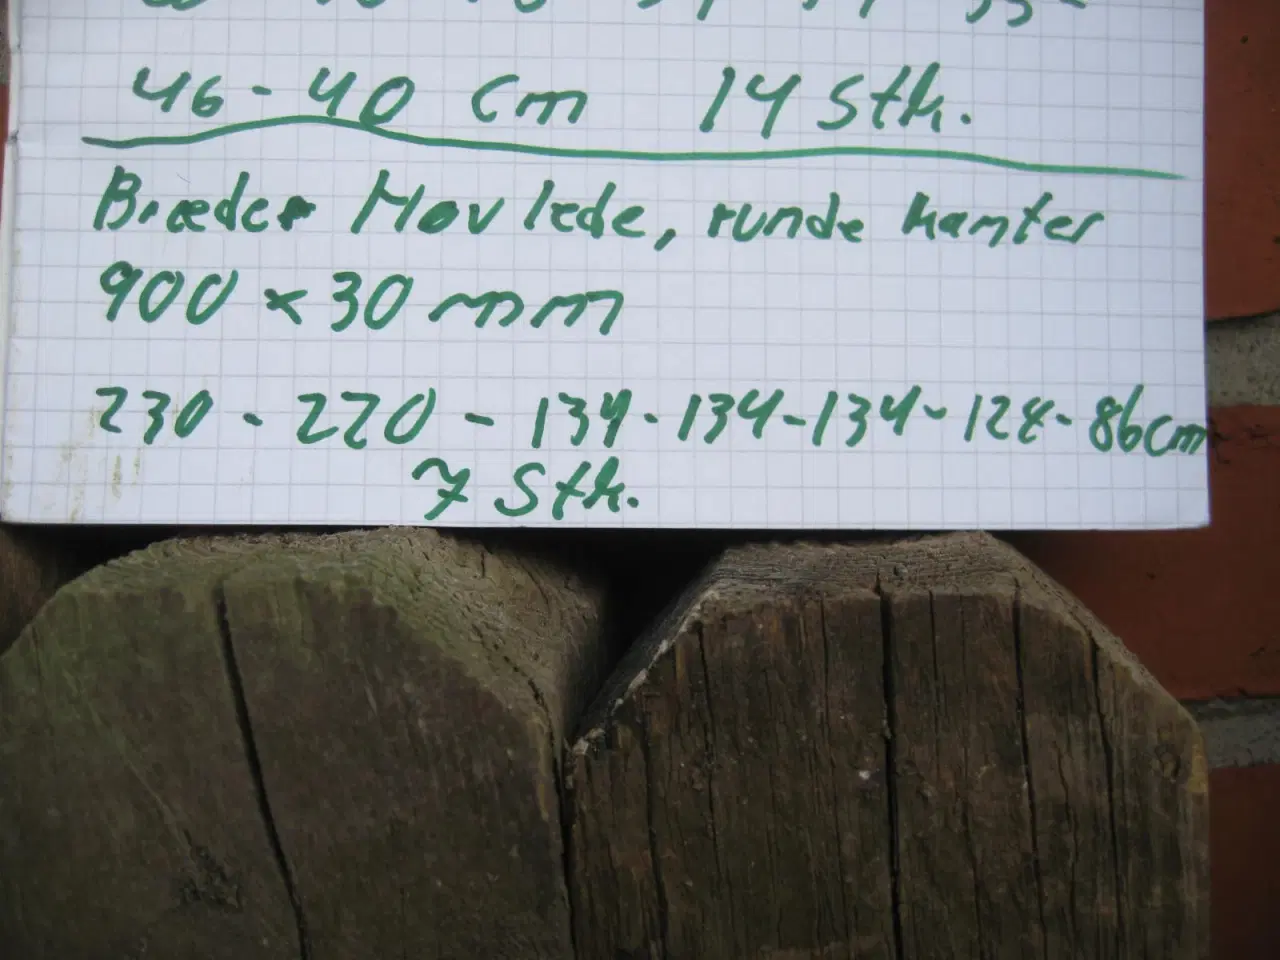 46 - 40 cm 14 Stk.
Bræder Høvlede, runde kanter
900 x 30 mm
230 - 220 - 134 - 134 - 134 - 128 - 86 cm
7 Stk.